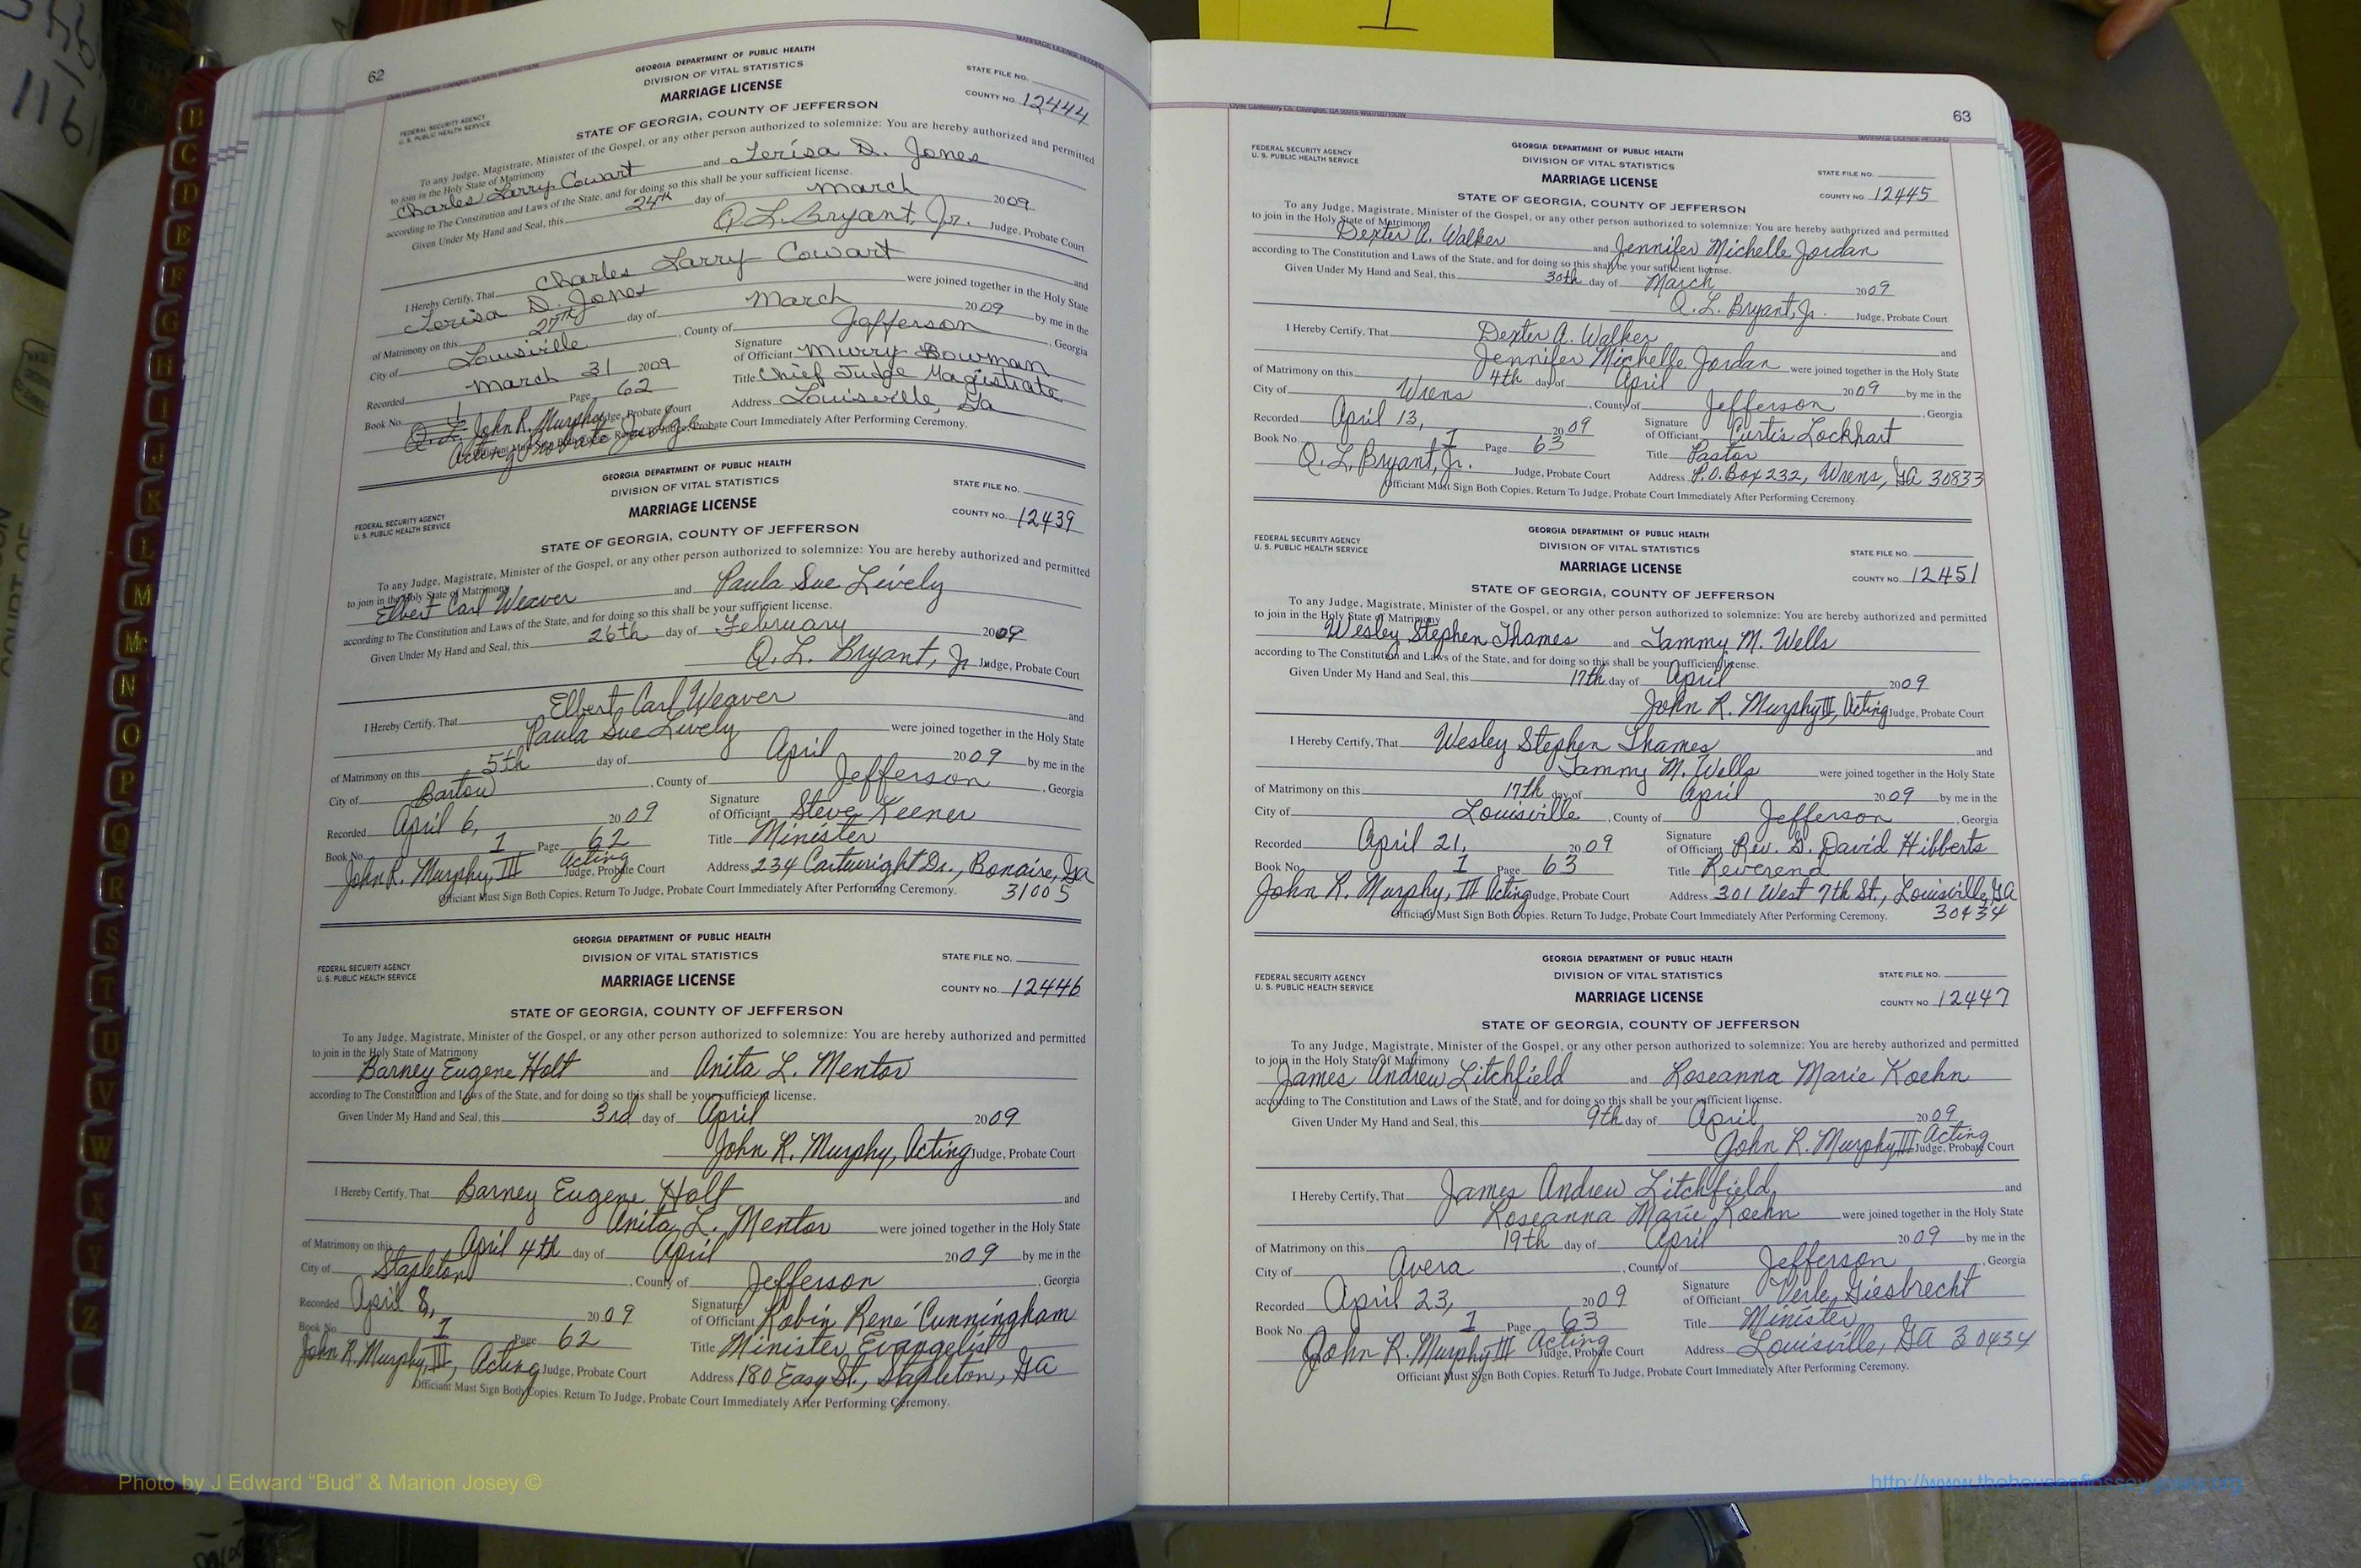 62
MARRIAGE LICENSE RECORD
GEORGIA DEPARTMENT OF PUBLIC HEALTH
DIVISION OF VITAL STATISTICS
MARRIAGE LICENSE
STATE OF GEORGIA, COUNTY OF JEFFERSON
FEDERAL SECURITY AGENCY
U. S. PUBLIC HEALTH SERVICE
STATE FILE NO.
COUNTY NO. 12444
To any Judge, Magistrate, Minister of the Gospel, or any other person authorized to solemnize: You are hereby authorized and permitted
to join in the Holy State of Matrimony
Charles Larry Cowart and Terisa D. Jones
according to The Constitution and Laws of the State, and for doing so this shall be your sufficient license.
Given Under My Hand and Seal, this 24th day of March 2009
Q. L. Bryant, Jr. Judge, Probate Court
I Hereby Certify, That Charles Larry Cowart and
Terisa D. Jones were joined together in the Holy State
of Matrimony on this 27th day of March 2009 by me in the
City of Louisville, County of Jefferson, Georgia
Recorded March 31 2009
Signature of Officiant Murry Bowman
Book No. 1 Page 62
Title Chief Judge Magistrate
Address Louisville, Ga
Q. L. John R. Murphy Judge, Probate Court
Acting Probate Judge
Officiant Must Sign Both Copies. Return To Judge, Probate Court Immediately After Performing Ceremony.
GEORGIA DEPARTMENT OF PUBLIC HEALTH
DIVISION OF VITAL STATISTICS
MARRIAGE LICENSE
STATE OF GEORGIA, COUNTY OF JEFFERSON
FEDERAL SECURITY AGENCY
U. S. PUBLIC HEALTH SERVICE
STATE FILE NO.
COUNTY NO. 12439
To any Judge, Magistrate, Minister of the Gospel, or any other person authorized to solemnize: You are hereby authorized and permitted
to join in the Holy State of Matrimony
Elbert Carl Weaver and Paula Sue Lively
according to The Constitution and Laws of the State, and for doing so this shall be your sufficient license.
Given Under My Hand and Seal, this 26th day of February 2009
Q. L. Bryant, Jr Judge, Probate Court
I Hereby Certify, That Elbert Carl Weaver and
Paula Sue Lively were joined together in the Holy State
of Matrimony on this 5th day of April 2009 by me in the
City of Bartow, County of Jefferson, Georgia
Recorded April 6, 2009
Signature of Officiant Steve Keener
Book No. 1 Page 62
Title Minister
John R. Murphy, III Acting Judge, Probate Court
Address 234 Cartwright Dr., Bonaire, Ga
31005
Officiant Must Sign Both Copies. Return To Judge, Probate Court Immediately After Performing Ceremony.
GEORGIA DEPARTMENT OF PUBLIC HEALTH
DIVISION OF VITAL STATISTICS
MARRIAGE LICENSE
STATE OF GEORGIA, COUNTY OF JEFFERSON
FEDERAL SECURITY AGENCY
U. S. PUBLIC HEALTH SERVICE
STATE FILE NO.
COUNTY NO. 12446
To any Judge, Magistrate, Minister of the Gospel, or any other person authorized to solemnize: You are hereby authorized and permitted
to join in the Holy State of Matrimony
Barney Eugene Holt and Anita L. Mentor
according to The Constitution and Laws of the State, and for doing so this shall be your sufficient license.
Given Under My Hand and Seal, this 3rd day of April 2009
John R. Murphy, Acting Judge, Probate Court
I Hereby Certify, That Barney Eugene Holt and
Anita L. Mentor were joined together in the Holy State
of Matrimony on this April 4th day of April 2009 by me in the
City of Stapleton, County of Jefferson, Georgia
Recorded April 8, 2009
Signature of Officiant Robin René Cunningham
Book No. 1 Page 62
Title Minister, Evangelist
John R. Murphy, III, Acting Judge, Probate Court
Address 180 Easy St., Stapleton, GA
Officiant Must Sign Both Copies. Return To Judge, Probate Court Immediately After Performing Ceremony.
1
63
MARRIAGE LICENSE RECORD
GEORGIA DEPARTMENT OF PUBLIC HEALTH
DIVISION OF VITAL STATISTICS
MARRIAGE LICENSE
STATE OF GEORGIA, COUNTY OF JEFFERSON
FEDERAL SECURITY AGENCY
U. S. PUBLIC HEALTH SERVICE
STATE FILE NO.
COUNTY NO. 12445
To any Judge, Magistrate, Minister of the Gospel, or any other person authorized to solemnize: You are hereby authorized and permitted
to join in the Holy State of Matrimony
Dexter A. Walker and Jennifer Michelle Jordan
according to The Constitution and Laws of the State, and for doing so this shall be your sufficient license.
Given Under My Hand and Seal, this 30th day of March 2009
Q. L. Bryant, Jr. Judge, Probate Court
I Hereby Certify, That Dexter A. Walker and
Jennifer Michelle Jordan were joined together in the Holy State
of Matrimony on this 4th day of April 2009 by me in the
City of Wrens, County of Jefferson, Georgia
Recorded April 13, 2009
Signature of Officiant Curtis Lockhart
Book No. 1 Page 63
Title Pastor
Q. L. Bryant, Jr. Judge, Probate Court
Address P.O. Box 232, Wrens, GA 30833
Officiant Must Sign Both Copies. Return To Judge, Probate Court Immediately After Performing Ceremony.
GEORGIA DEPARTMENT OF PUBLIC HEALTH
DIVISION OF VITAL STATISTICS
MARRIAGE LICENSE
STATE OF GEORGIA, COUNTY OF JEFFERSON
FEDERAL SECURITY AGENCY
U. S. PUBLIC HEALTH SERVICE
STATE FILE NO.
COUNTY NO. 12451
To any Judge, Magistrate, Minister of the Gospel, or any other person authorized to solemnize: You are hereby authorized and permitted
to join in the Holy State of Matrimony
Wesley Stephen Thames and Tammy M. Wells
according to The Constitution and Laws of the State, and for doing so this shall be your sufficient license.
Given Under My Hand and Seal, this 17th day of April 2009
John R. Murphy III, Acting Judge, Probate Court
I Hereby Certify, That Wesley Stephen Thames and
Tammy M. Wells were joined together in the Holy State
of Matrimony on this 17th day of April 2009 by me in the
City of Louisville, County of Jefferson, Georgia
Recorded April 21, 2009
Signature of Officiant Rev. G. David Hibberts
Book No. 1 Page 63
Title Reverend
John R. Murphy, III Acting Judge, Probate Court
Address 301 West 7th St., Louisville, GA
30434
Officiant Must Sign Both Copies. Return To Judge, Probate Court Immediately After Performing Ceremony.
GEORGIA DEPARTMENT OF PUBLIC HEALTH
DIVISION OF VITAL STATISTICS
MARRIAGE LICENSE
STATE OF GEORGIA, COUNTY OF JEFFERSON
FEDERAL SECURITY AGENCY
U. S. PUBLIC HEALTH SERVICE
STATE FILE NO.
COUNTY NO. 12447
To any Judge, Magistrate, Minister of the Gospel, or any other person authorized to solemnize: You are hereby authorized and permitted
to join in the Holy State of Matrimony
James Andrew Litchfield and Roseanna Marie Koehn
according to The Constitution and Laws of the State, and for doing so this shall be your sufficient license.
Given Under My Hand and Seal, this 9th day of April 2009
John R. Murphy III Acting Judge, Probate Court
I Hereby Certify, That James Andrew Litchfield and
Roseanna Marie Koehn were joined together in the Holy State
of Matrimony on this 19th day of April 2009 by me in the
City of Avera, County of Jefferson, Georgia
Recorded April 23, 2009
Signature of Officiant Verle Giesbrecht
Book No. 1 Page 63
Title Minister
John R. Murphy III Acting Judge, Probate Court
Address Louisville, GA 30434
Officiant Must Sign Both Copies. Return To Judge, Probate Court Immediately After Performing Ceremony.
B
C
D
E
F
G
H
I
J
K
L
M
Mc
N
O
P
Q
R
S
T
U
V
W
X
Y
Z
Photo by J Edward “Bud” & Marion Josey ©